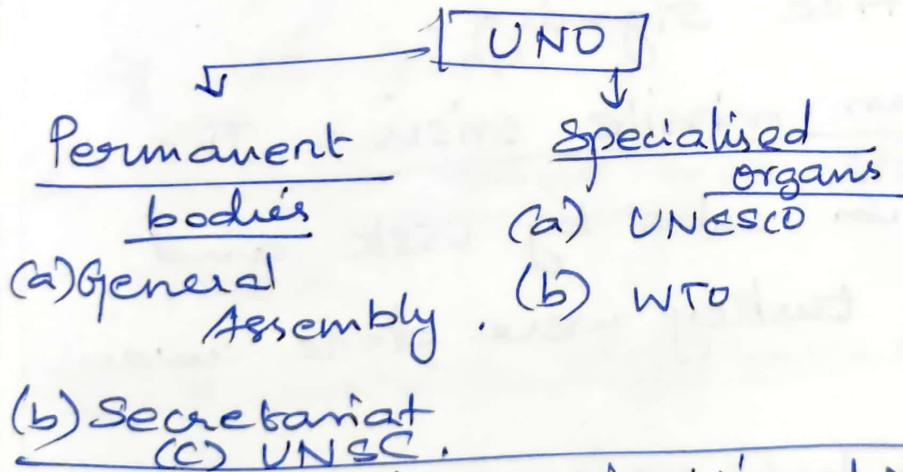 UNO
Permanent
bodies
(a) General
Assembly.
(b) Secretariat
(c) UNSC.
Specialised
organs
(a) UNESCO
(b) WTO